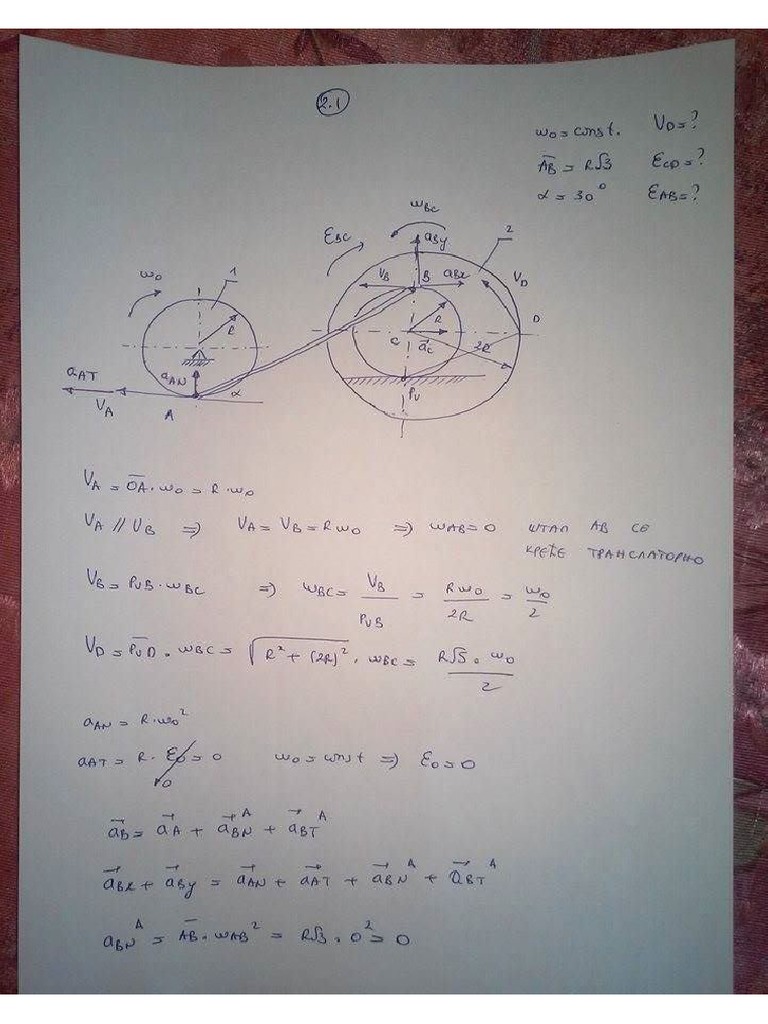 2.1
ω₀ = const. V_D = ?
A̅B̅ = R√3 ε_CD = ?
α = 30° ε_AB = ?
ω_BC
ε_BC a_By 2
V_B B a_Bx V_D
ω₀ 1
R R D
C a⃗_C 2R
a_AT a_AN α P_V
V_A A
V_A = O̅A̅ · ω₀ = R · ω₀
V_A // V_B ⇒ V_A = V_B = Rω₀ ⇒ ω_AB = 0 ШТАП АВ СЕ
КРЕЋЕ ТРАНСЛАТОРНО
V_B = P_VB · ω_BC ⇒ ω_BC = V_B / P_VB = Rω₀ / 2R = ω₀ / 2
V_D = P̅_V̅D̅ · ω_BC = √(R² + (2R)²) · ω_BC = R√5 · ω₀ / 2
a_AN = R · ω₀²
a_AT = R · ε₀ = 0 ω₀ = const ⇒ ε₀ = 0
0
a⃗_B = a⃗_A + a⃗_BN^A + a⃗_BT^A
a⃗_Bx + a⃗_By = a⃗_AN + a⃗_AT + a⃗_BN^A + a⃗_BT^A
a_BN^A = A̅B̅ · ω_AB² = R√3 · 0² = 0